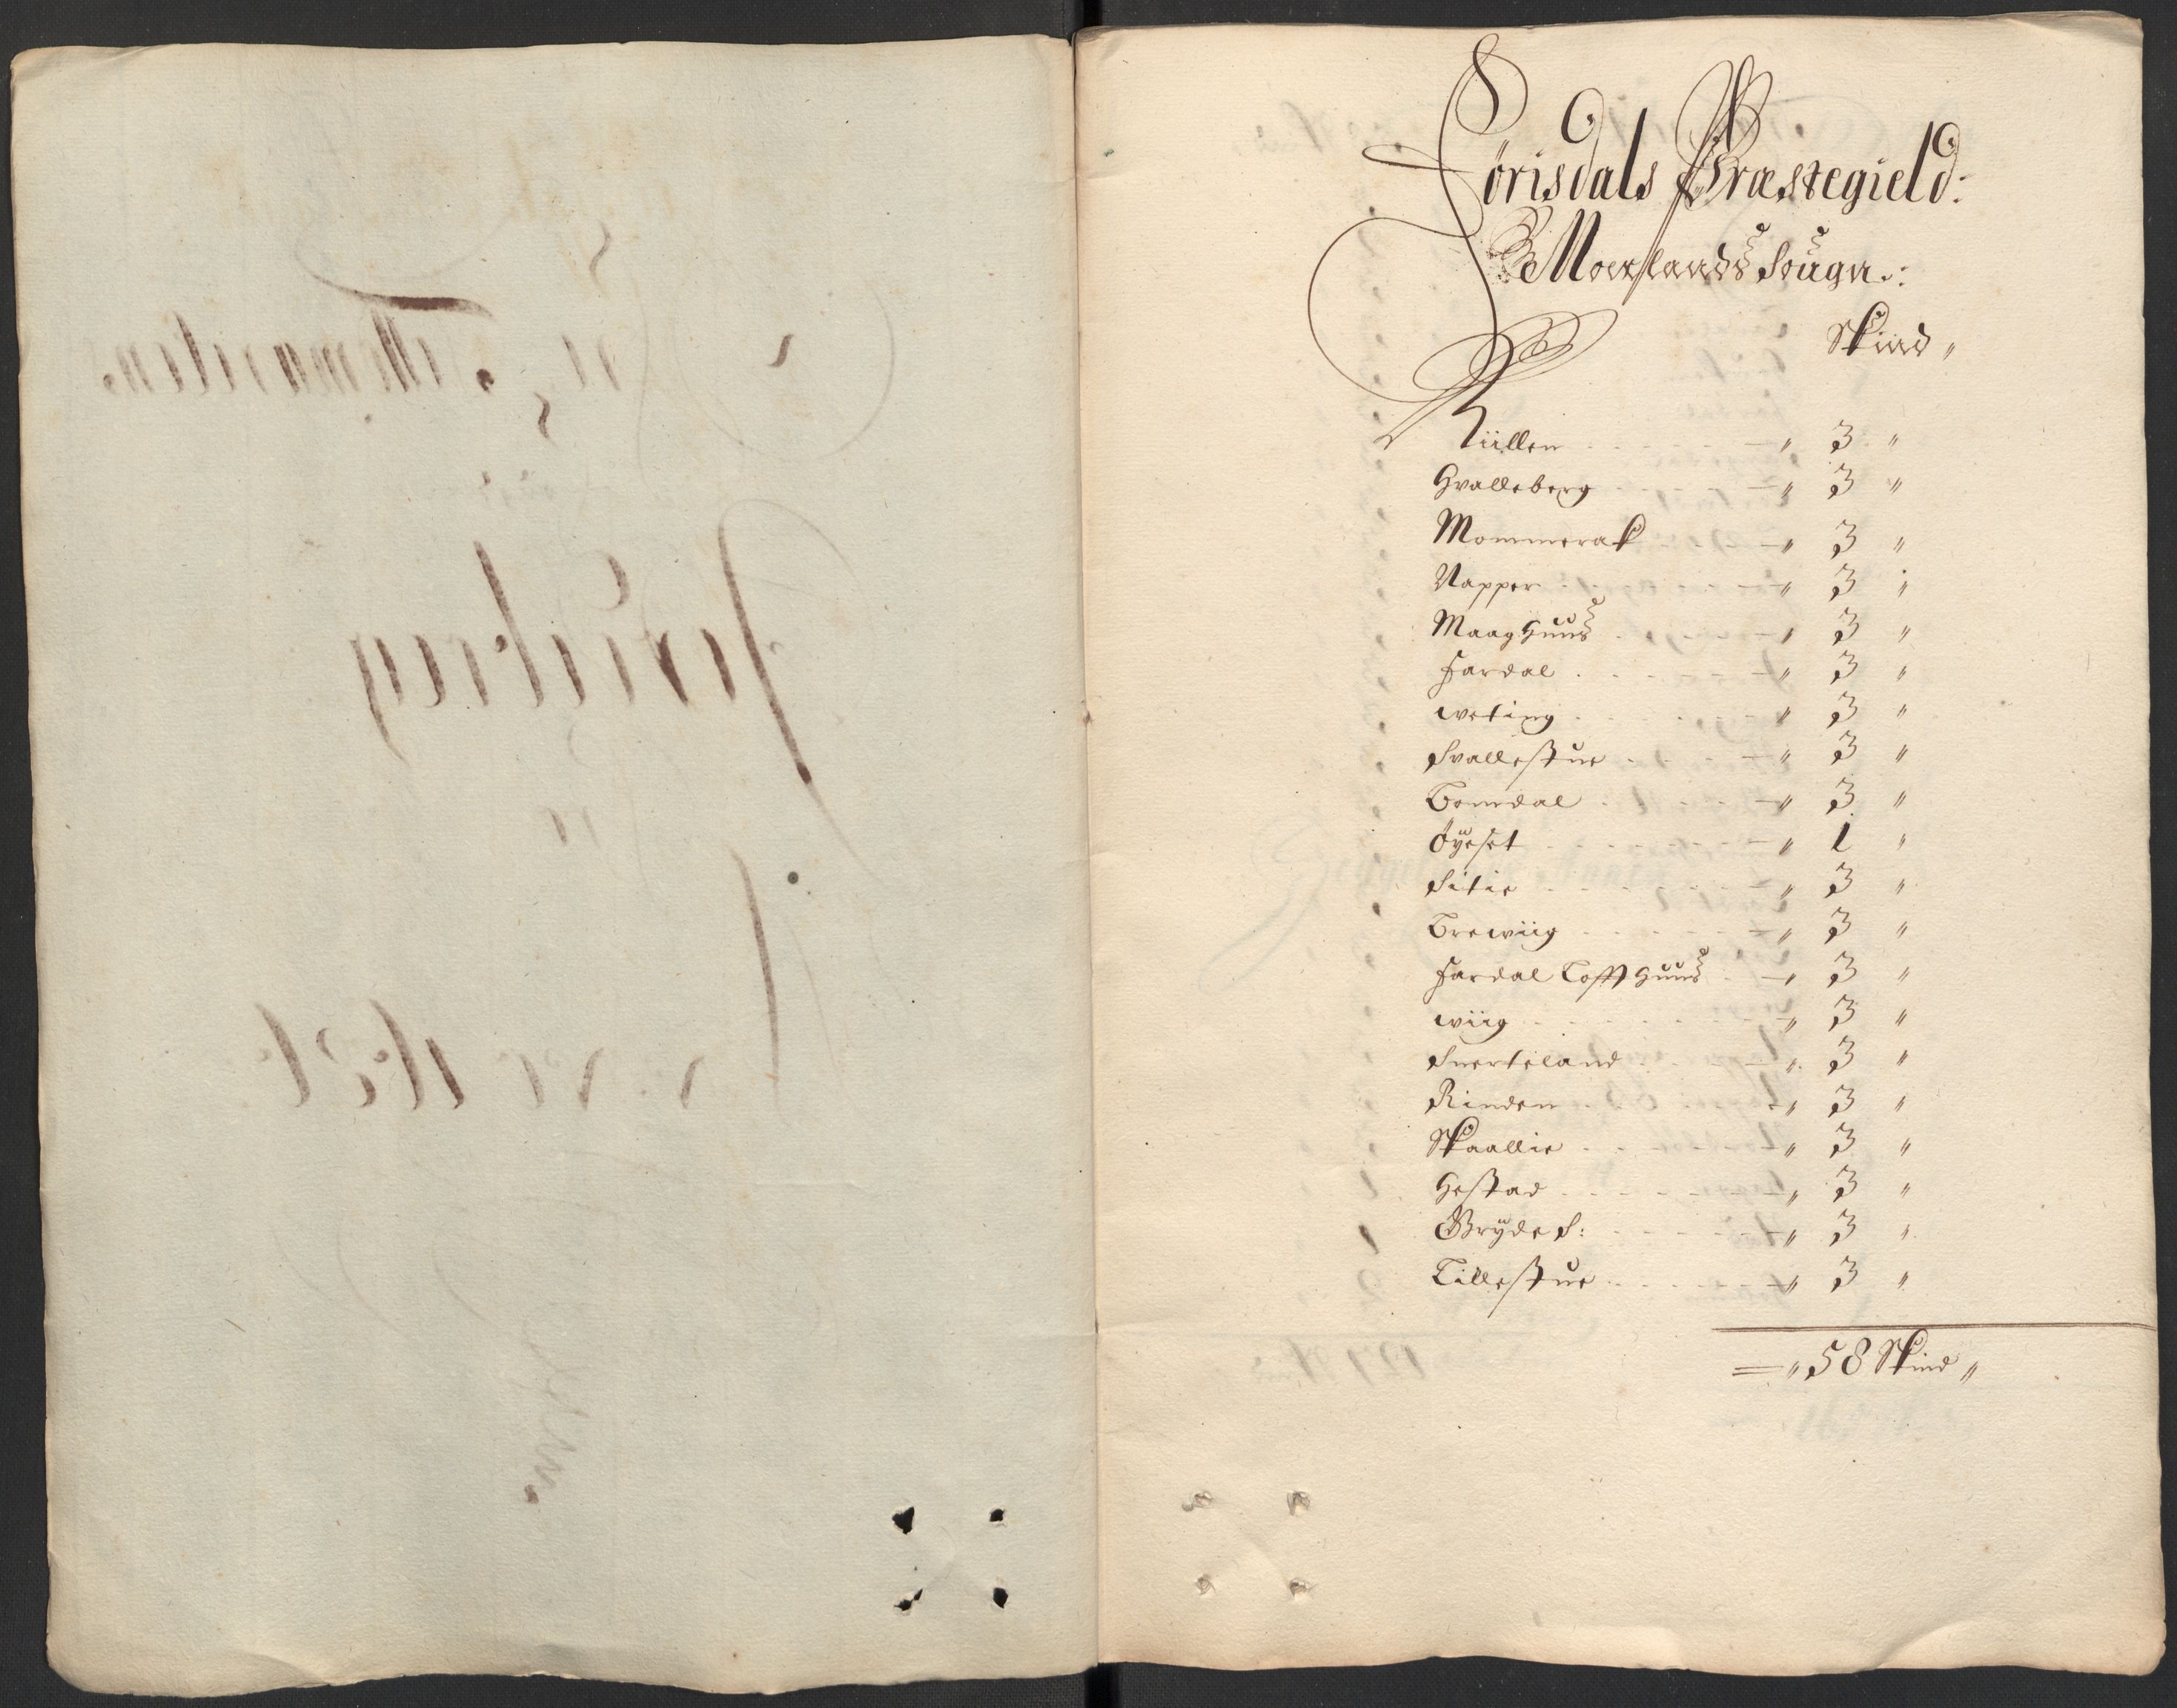 Förisdals Præstegield:
Moeslands Sougn:
Skind "
Küllen - - - - " 3 "
Hvalleberg - - - - " 3 "
Mommerak - - - - " 3 "
Napper - - - - " 3 "
Maaghuus - - " 3 "
Fardal - - - - " 3 "
weting - - - - " 3 "
Svallestue - - - - " 3 "
Bondal - - - - " 3 "
Öÿeset - - - - " 1 "
Sitie - - - - " 3 "
Brewiig - - - - " 3 "
Fardal Loffthuus - " 3 "
wiig - - - - " 3 "
Snerteland - - - " 3 "
Rinden - - - - " 3 "
Skaallie - - - - " 3 "
Hestad - - - - " 3 "
Grÿde S: - - - - " 3 "
Lillestue - - - - " 3 "
= " 58 Skind "